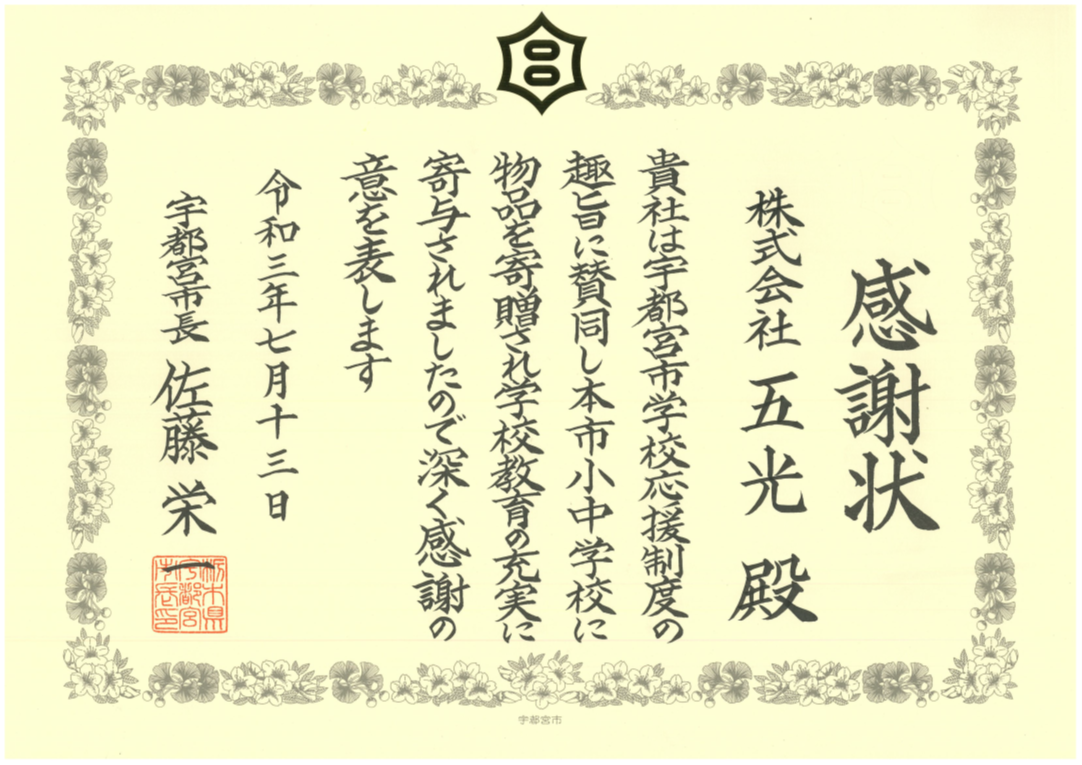 感謝状
株式会社 五光 殿
貴社は宇都宮市学校応援制度の
趣旨に賛同し本市小中学校に
物品を寄贈され学校教育の充実に
寄与されましたので深く感謝の
意を表します
令和三年七月十三日
宇都宮市長 佐藤 栄一
栃木県
宇都宮
市長印
宇都宮市